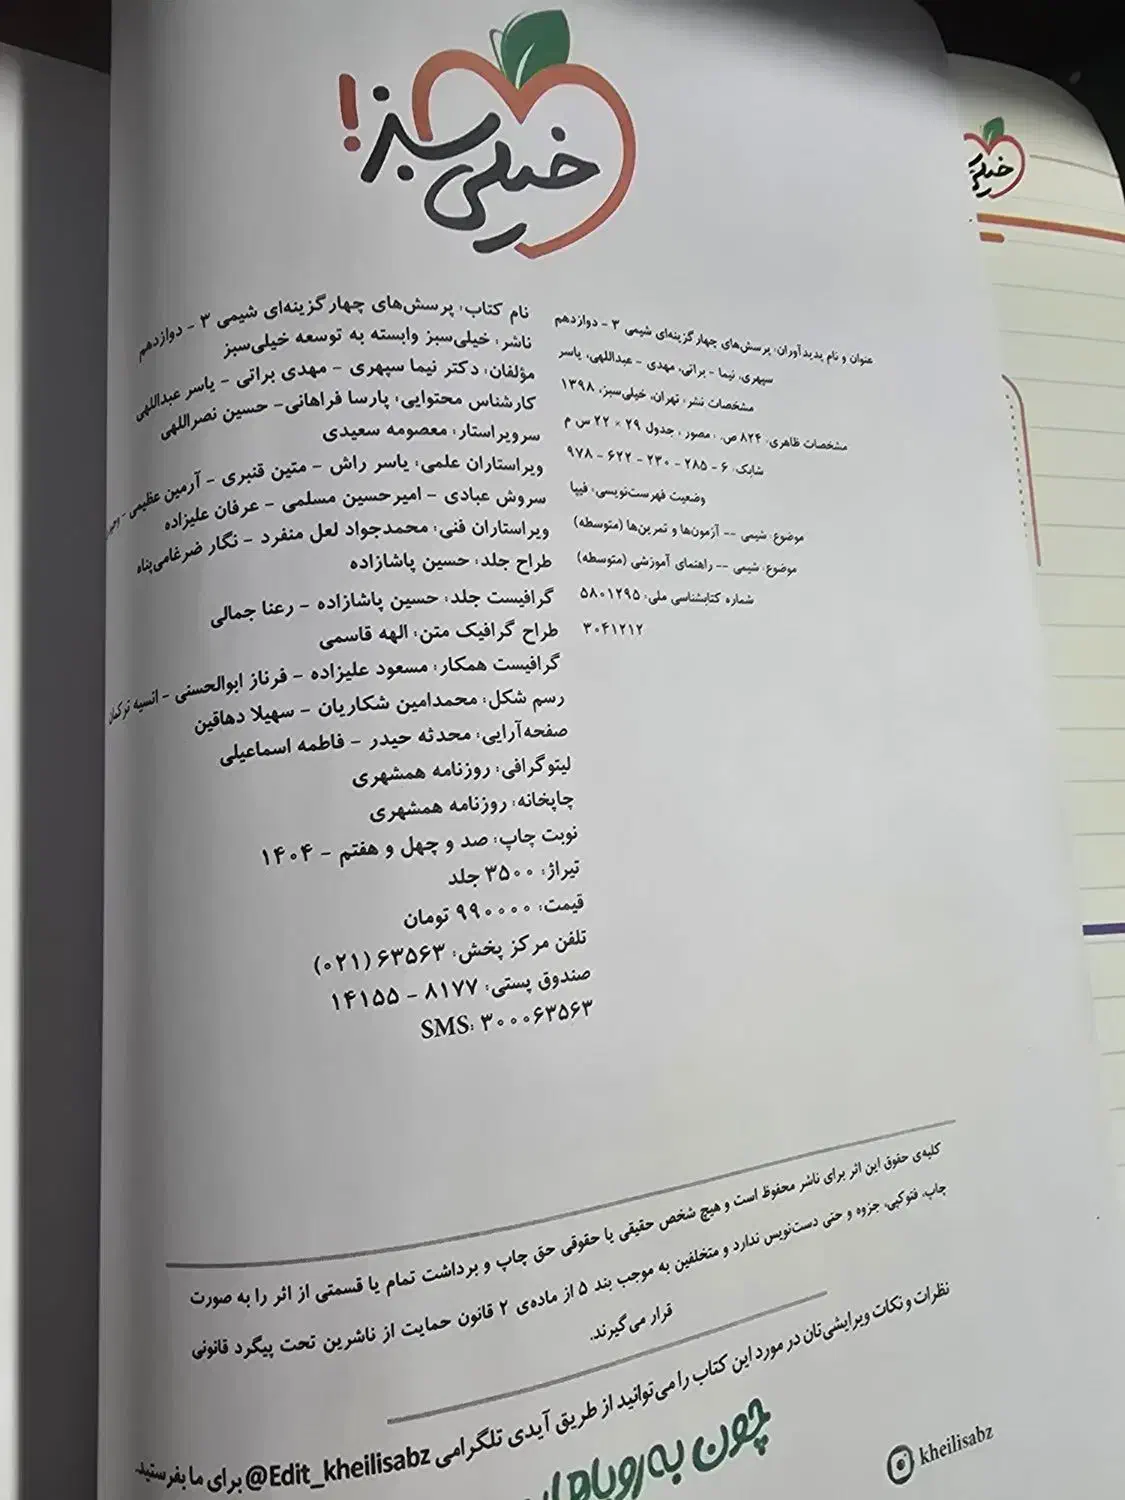 خیلی سبز!
خیلی
عنوان و نام پدیدآوران: پرسش‌های چهارگزینه‌ای شیمی ۳ - دوازدهم
سپهری، نیما - براتی، مهدی - عبداللهی، یاسر
مشخصات نشر: تهران، خیلی‌سبز، ۱۳۹۸
مشخصات ظاهری: ۸۲۴ ص.، مصور، جدول ۲۹ × ۲۲ س م
شابک: ۶ - ۲۸۵ - ۲۳۰ - ۶۲۲ - ۹۷۸
وضعیت فهرست‌نویسی: فیپا
موضوع: شیمی -- آزمون‌ها و تمرین‌ها (متوسطه)
موضوع: شیمی -- راهنمای آموزشی (متوسطه)
شماره کتابشناسی ملی: ۵۸۰۱۲۹۵
۳۰۴۱۲۱۲
نام کتاب: پرسش‌های چهارگزینه‌ای شیمی ۳ - دوازدهم
ناشر: خیلی‌سبز وابسته به توسعه خیلی‌سبز
مؤلفان: دکتر نیما سپهری - مهدی براتی - یاسر عبداللهی
کارشناس محتوایی: پارسا فراهانی- حسین نصراللهی
سرویراستار: معصومه سعیدی
ویراستاران علمی: یاسر راش - متین قنبری - آرمین عظیمی -
سروش عبادی - امیرحسین مسلمی - عرفان علیزاده
ویراستاران فنی: محمدجواد لعل منفرد - نگار ضرغامی‌پناه
طراح جلد: حسین پاشازاده
گرافیست جلد: حسین پاشازاده - رعنا جمالی
طراح گرافیک متن: الهه قاسمی
گرافیست همکار: مسعود علیزاده - فرناز ابوالحسنی - انسیه ترکمان
رسم شکل: محمدامین شکاریان - سهیلا دهاقین
صفحه‌آرایی: محدثه حیدر - فاطمه اسماعیلی
لیتوگرافی: روزنامه همشهری
چاپخانه: روزنامه همشهری
نوبت چاپ: صد و چهل و هفتم - ۱۴۰۴
تیراژ: ۳۵۰۰ جلد
قیمت: ۹۹۰۰۰۰ تومان
تلفن مرکز پخش: ۶۳۵۶۳ (۰۲۱)
صندوق پستی: ۸۱۷۷ - ۱۴۱۵۵
SMS: ۳۰۰۰۶۳۵۶۳
کلیه‌ی حقوق این اثر برای ناشر محفوظ است و هیچ شخص حقیقی یا حقوقی حق چاپ و برداشت تمام یا قسمتی از اثر را به صورت
چاپ، فتوکپی، جزوه و حتی دست‌نویس ندارد و متخلفین به موجب بند ۵ از ماده‌ی ۲ قانون حمایت از ناشرین تحت پیگرد قانونی
قرار می‌گیرند.
نظرات و نکات ویرایشی‌تان در مورد این کتاب را می‌توانید از طریق آیدی تلگرامی @Edit_kheilisabz برای ما بفرستید.
kheilisabz
چون به رویاها